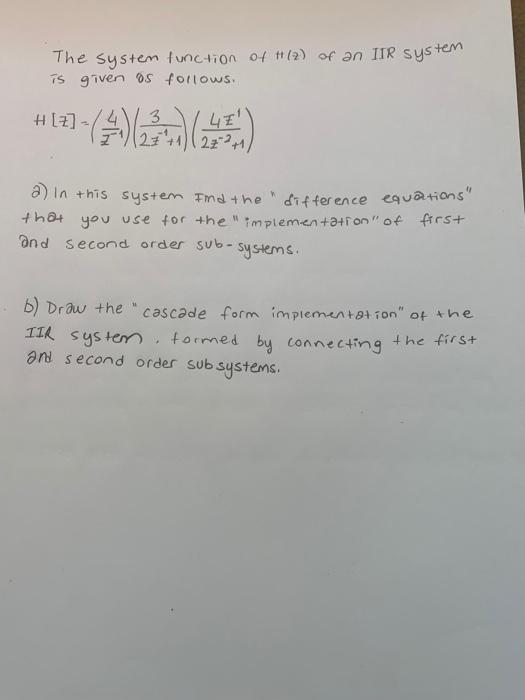 The system function of H(z) of an IIR system
is given as follows.
H[z] = (4/z⁻¹)(3/2z⁻¹+1)(4z¹/2z⁻²+1)
a) In this system Find the "difference equations"
that you use for the "implementation" of first
and second order sub-systems.
b) Draw the "cascade form implementation" of the
IIR system, formed by connecting the first
and second order subsystems.